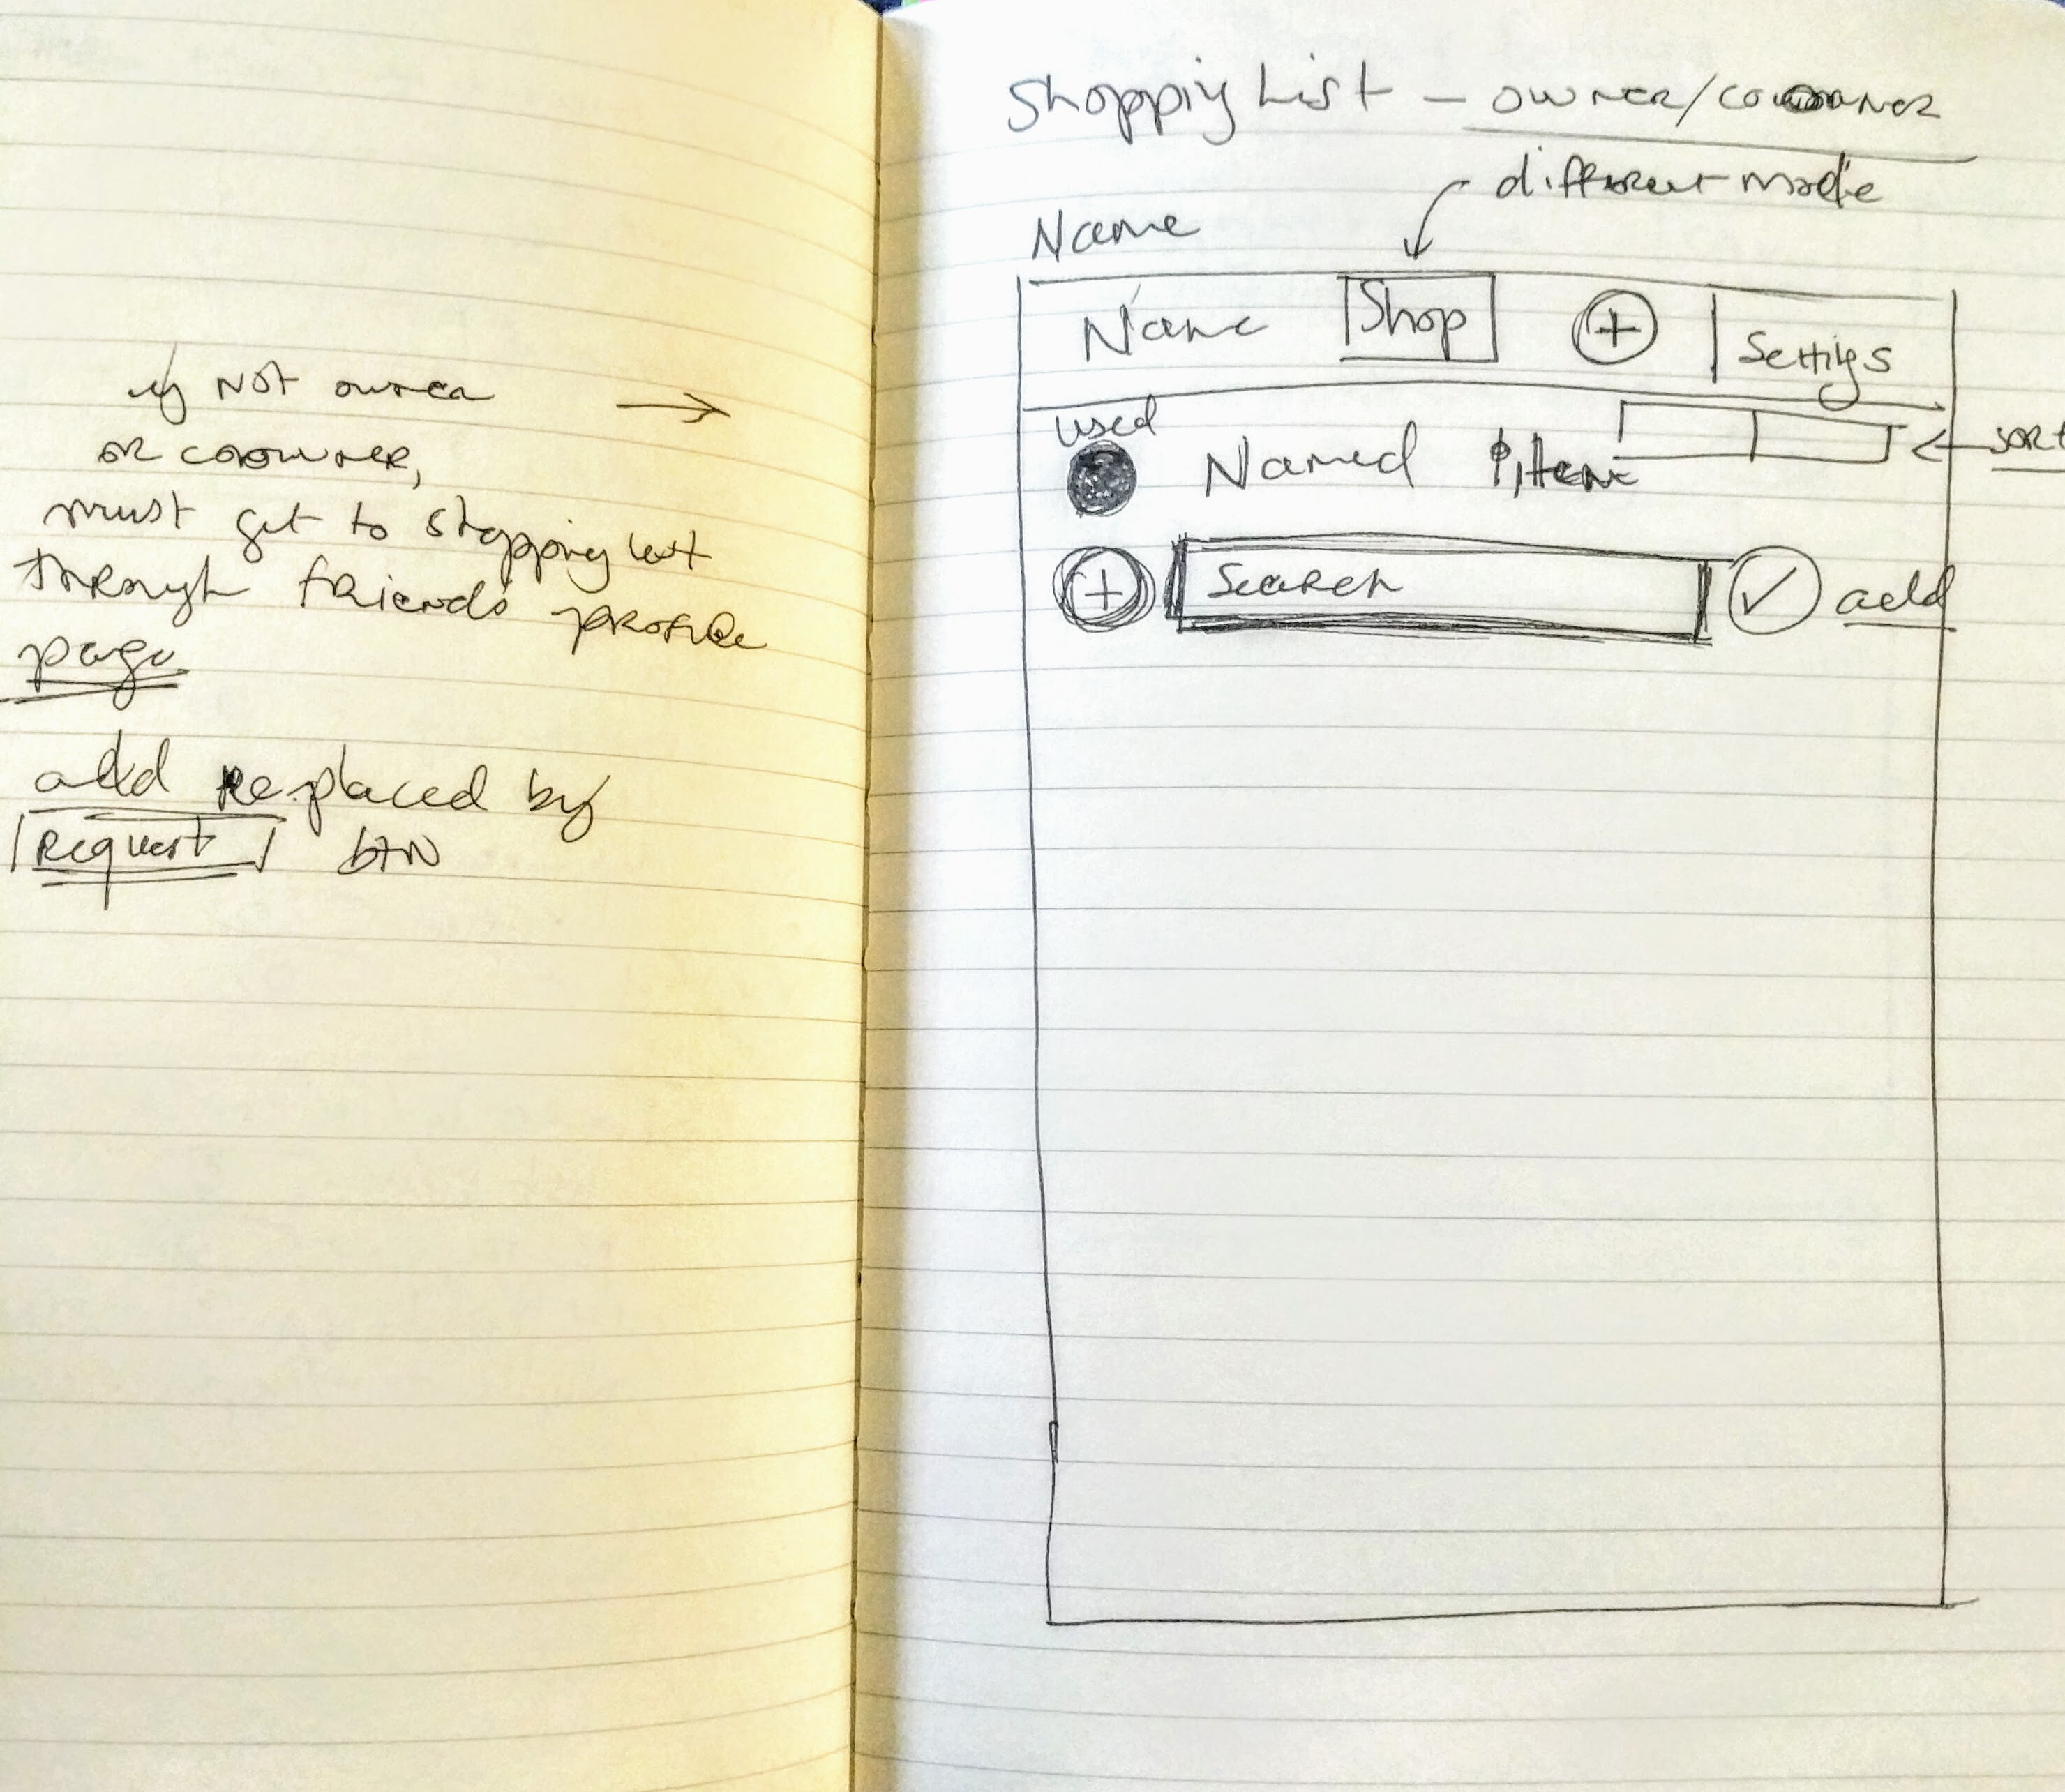 if NOT owner
or coowner,
must get to shopping list
through friends profile
page
add replaced by
Request btn
Shopping List - owner/coowner
different mode
Name
Name Shop + Settings
used
Named Item
sort
+ Search ✓ add